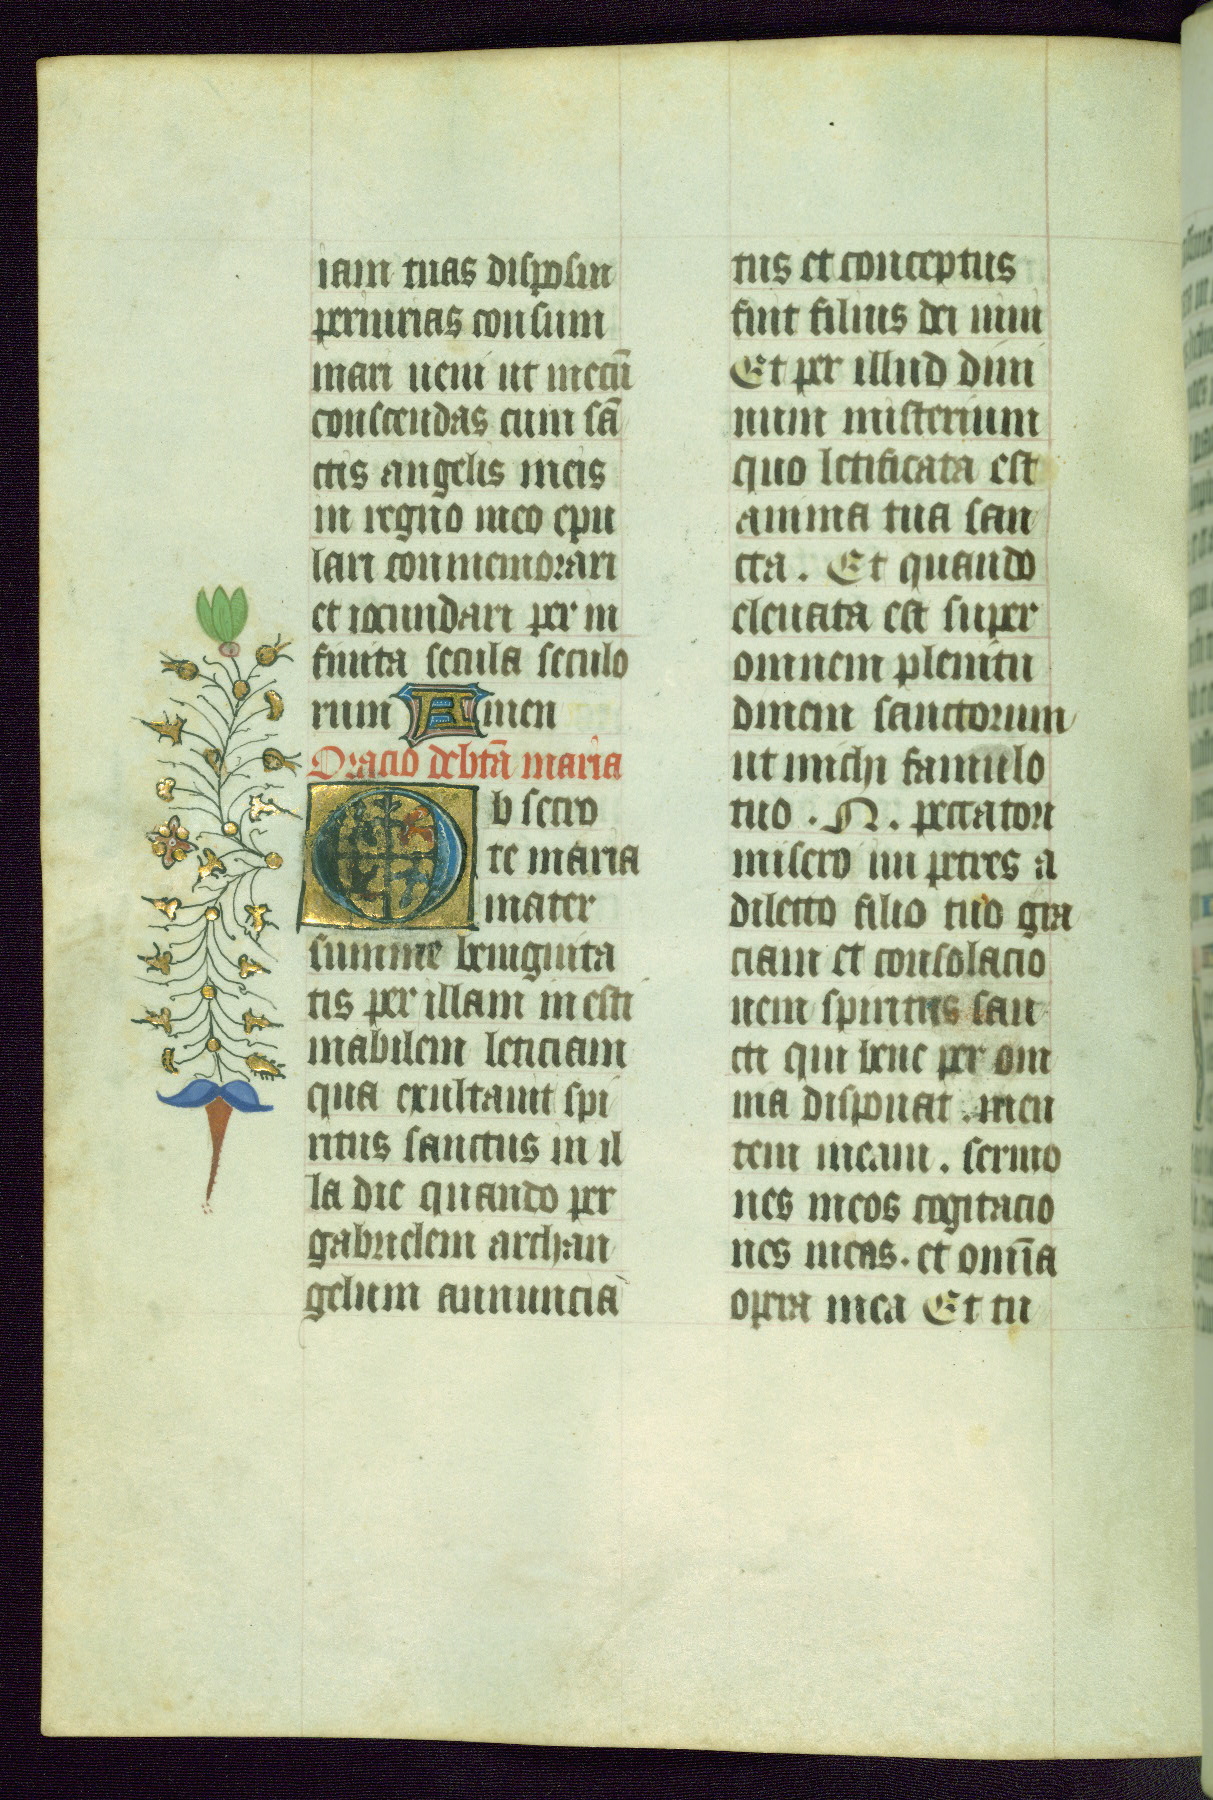 iam tuas disposui
penurias consum
mari ueni ut mecū
conscendas cum sā
ctis angelis meis
in regno meo epu
lari conmemorari
et iocundari per in
finita secula seculo
rum Amen
Oracio de btā maria
Obsecro
te maria
mater
summe benignita
tis per illam inesti
mabilem leticiam
qua exultauit spi
ritus sanctus in il
la die quando per
gabrielem archan
gelum annuncia
tus et conceptus
fuit filius dei uiui
Et per illud diui
num misterium
quo letificata est
anima tua san
cta. Et quando
eleuata est super
omnem plenitu
dinem sanctorum
ut michi famulo
tuo .N. peccatori
misero impetres a
dilecto filio tuo gra
ciam et consolacio
nem spiritus san
cti qui bene per om
nia disponat .men
tem meam. sermo
nes meos cogitacio
nes meas. et omīa
opera mea Et tu